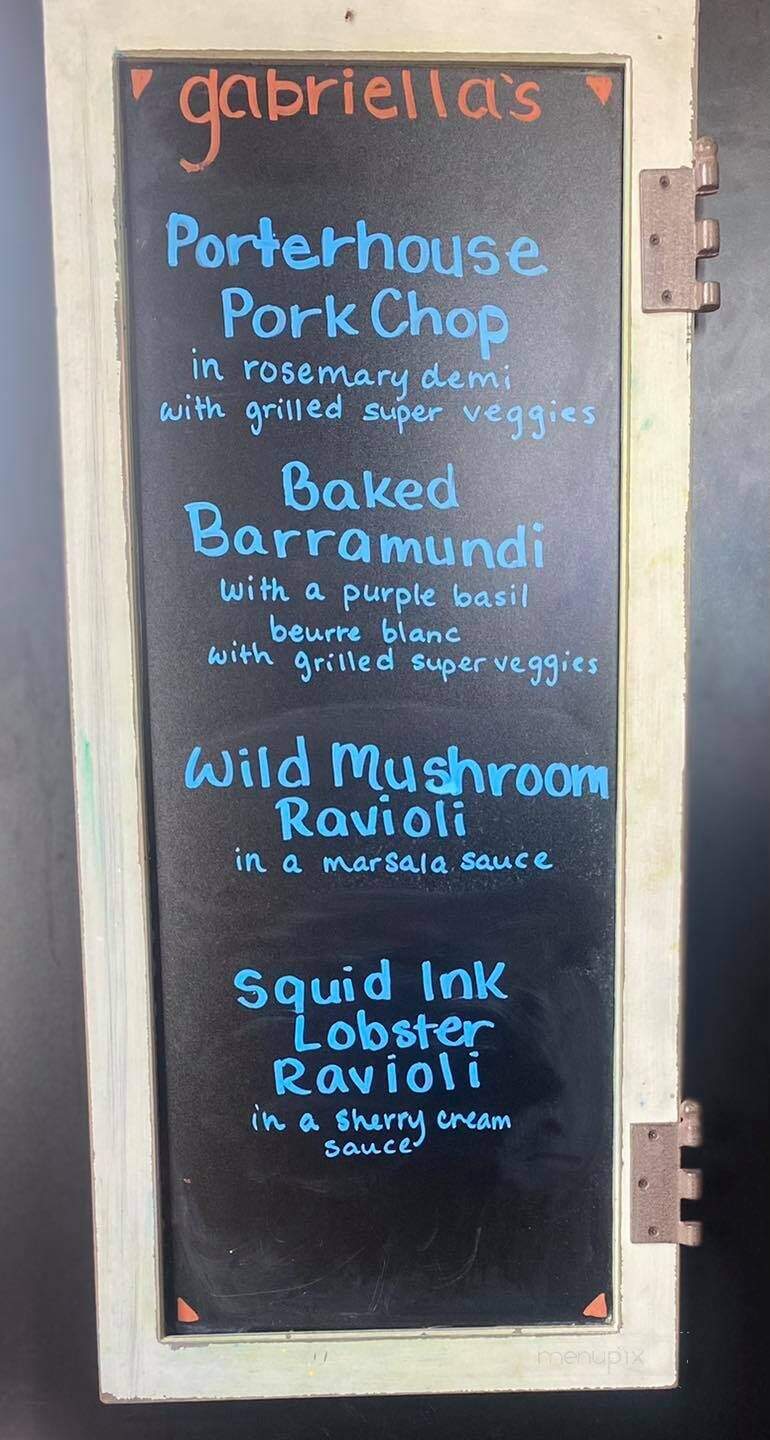 gabriella's
Porterhouse
Pork Chop
in rosemary demi
with grilled super veggies
Baked
Barramundi
with a purple basil
beurre blanc
with grilled super veggies
Wild Mushroom
Ravioli
in a marsala sauce
Squid Ink
Lobster
Ravioli
in a sherry cream
sauce
menupix